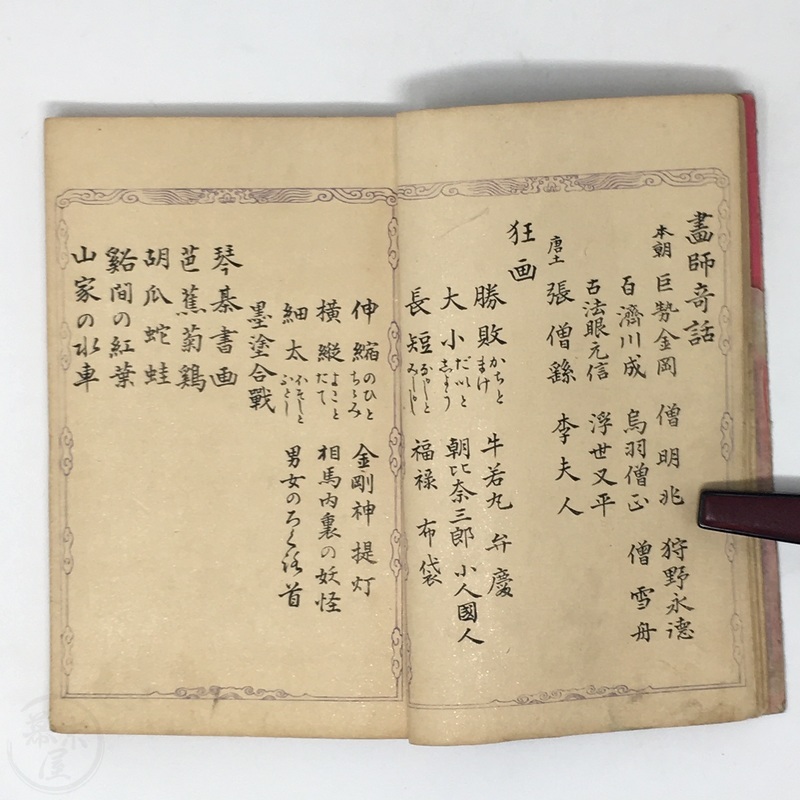 畫師奇話
本朝 巨勢金岡 僧明兆 狩野永德
百濟川成 鳥羽僧正 僧雪舟
古法眼元信 浮世又平
唐土 張僧繇 李夫人
狂画
勝敗 かちと まけ 牛若丸 弁慶
大小 だいと しよう 朝比奈三郎 小人國人
長短 福禄 布袋
伸縮 のひと ちゝみ 金剛神 提灯
横縦 よこと たて 相馬内裏の妖怪
細太 ほそしと ふとし 男女のろくろ首
墨塗合戰
琴棊書画
芭蕉菊鶏
胡瓜蛇蛙
谿間の紅葉
山家の水車